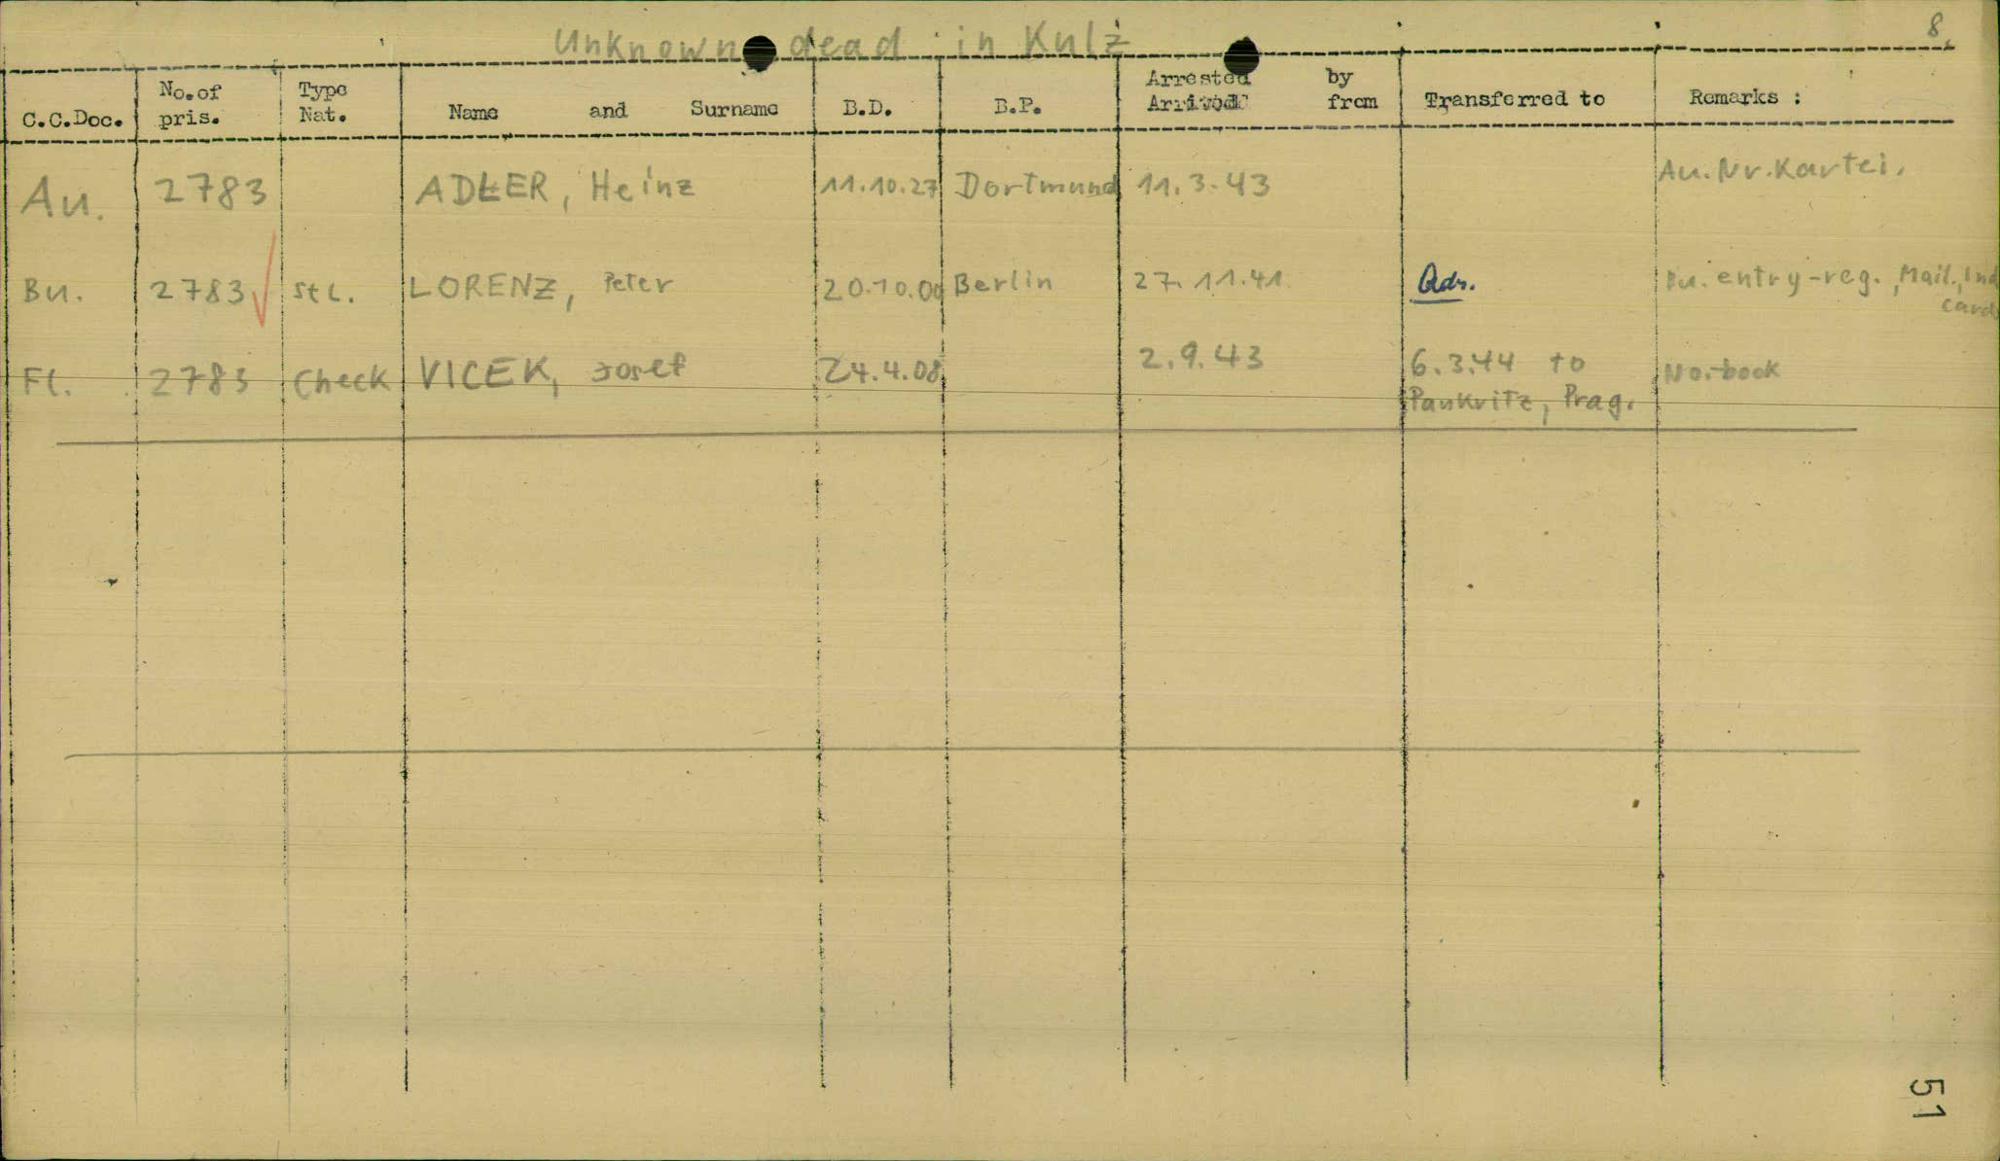 8.
Unknown dead in Kulz
C.C.Doc. No.of pris. Type Nat. Name and Surname B.D. B.P. Arrested by Arrived from Transferred to Remarks :
Au. 2783 ADLER, Heinz 11.10.27 Dortmund 11.3.43 Au.Nr.Kartei.
Bu. 2783 stl. LORENZ, Peter 20.10.00 Berlin 27.11.41 Adr. Bu. entry-reg., Mail., Ind
card
Fl. 2783 Check VICEK, Josef 24.4.08. 2.9.43 6.3.44 to No.-book
Pankritz, Prag.
51